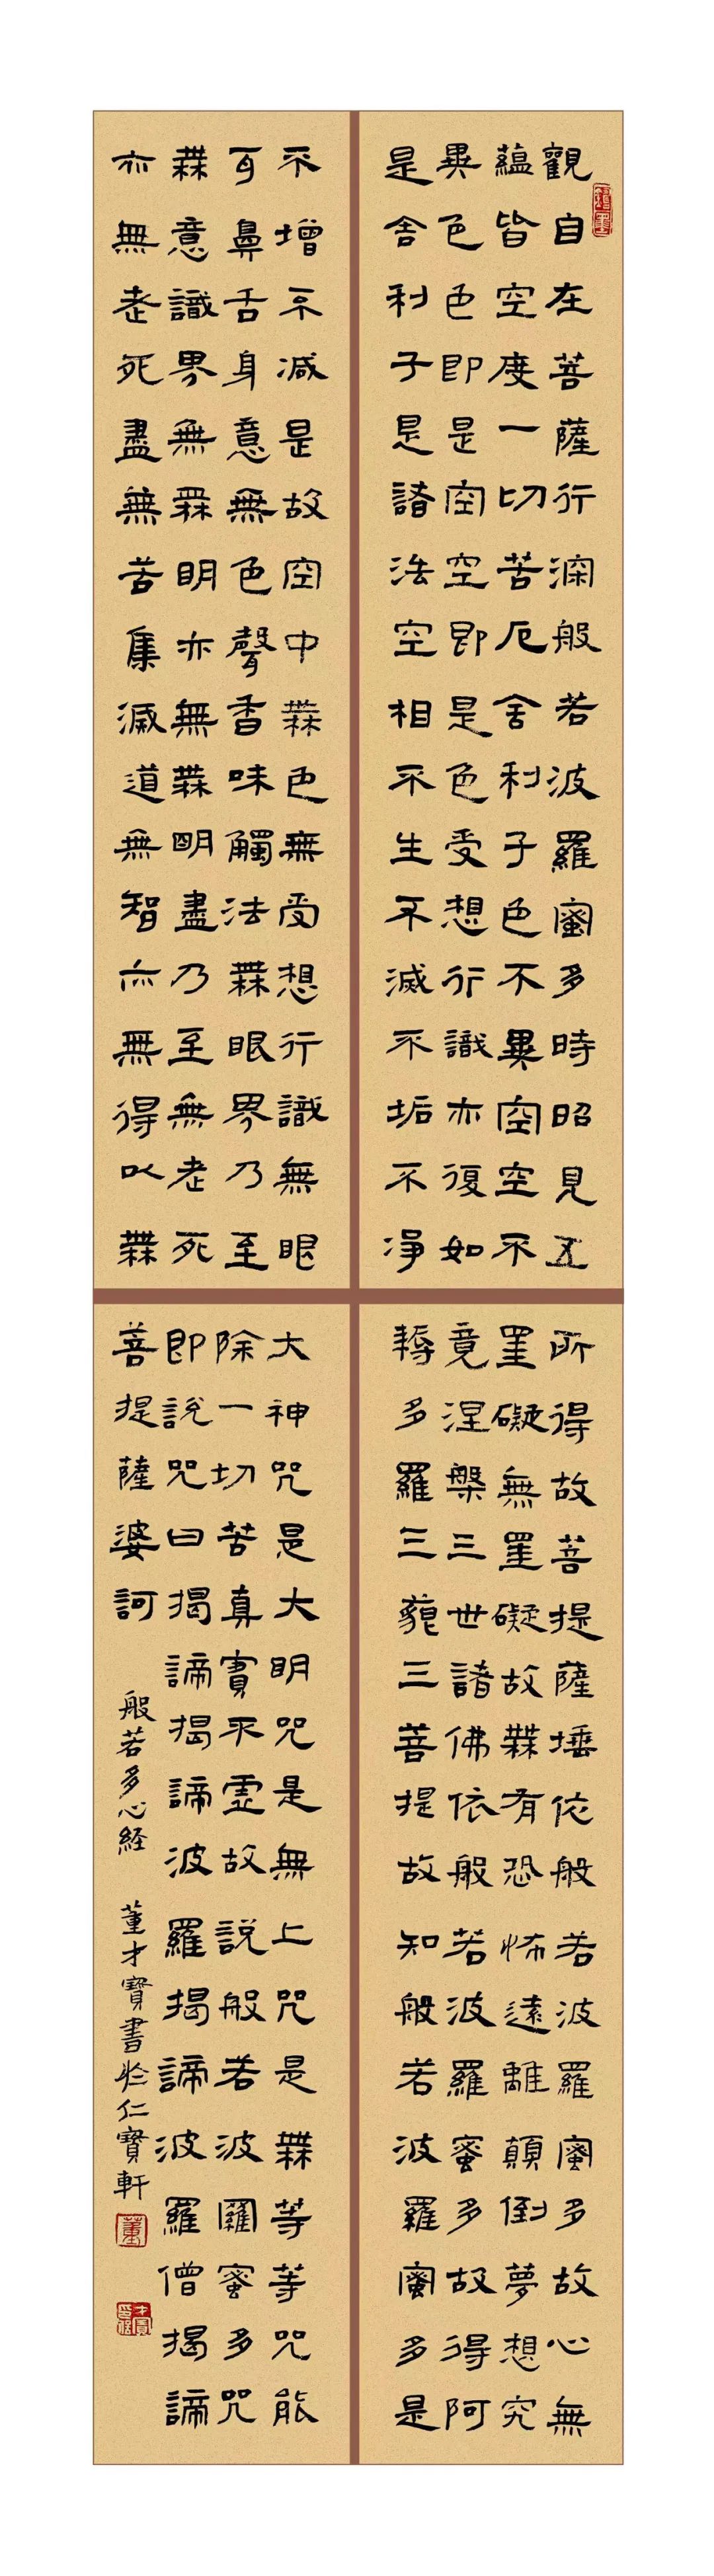 觀自在菩薩行深般若波羅蜜多時昭見五
蘊皆空度一切苦厄舍利子色不異空空不
異色色即是空空即是色受想行識亦復如
是舍利子是諸法空相不生不滅不垢不淨
不增不減是故空中無色無受想行識無眼
耳鼻舌身意無色聲香味觸法無眼界乃至
無意識界無無明亦無無明盡乃至無老死
亦無老死盡無苦集滅道無智亦無得以無
所得故菩提薩埵依般若波羅蜜多故心無
罣礙無罣礙故無有恐怖遠離顛倒夢想究
竟涅槃三世諸佛依般若波羅蜜多故得阿
耨多羅三藐三菩提故知般若波羅蜜多是
大神咒是大明咒是無上咒是無等等咒能
除一切苦真實不虛故說般若波羅蜜多咒
即說咒曰揭諦揭諦波羅揭諦波羅僧揭諦
菩提薩婆訶
般若多心経 董才寶書於仁寶軒
董